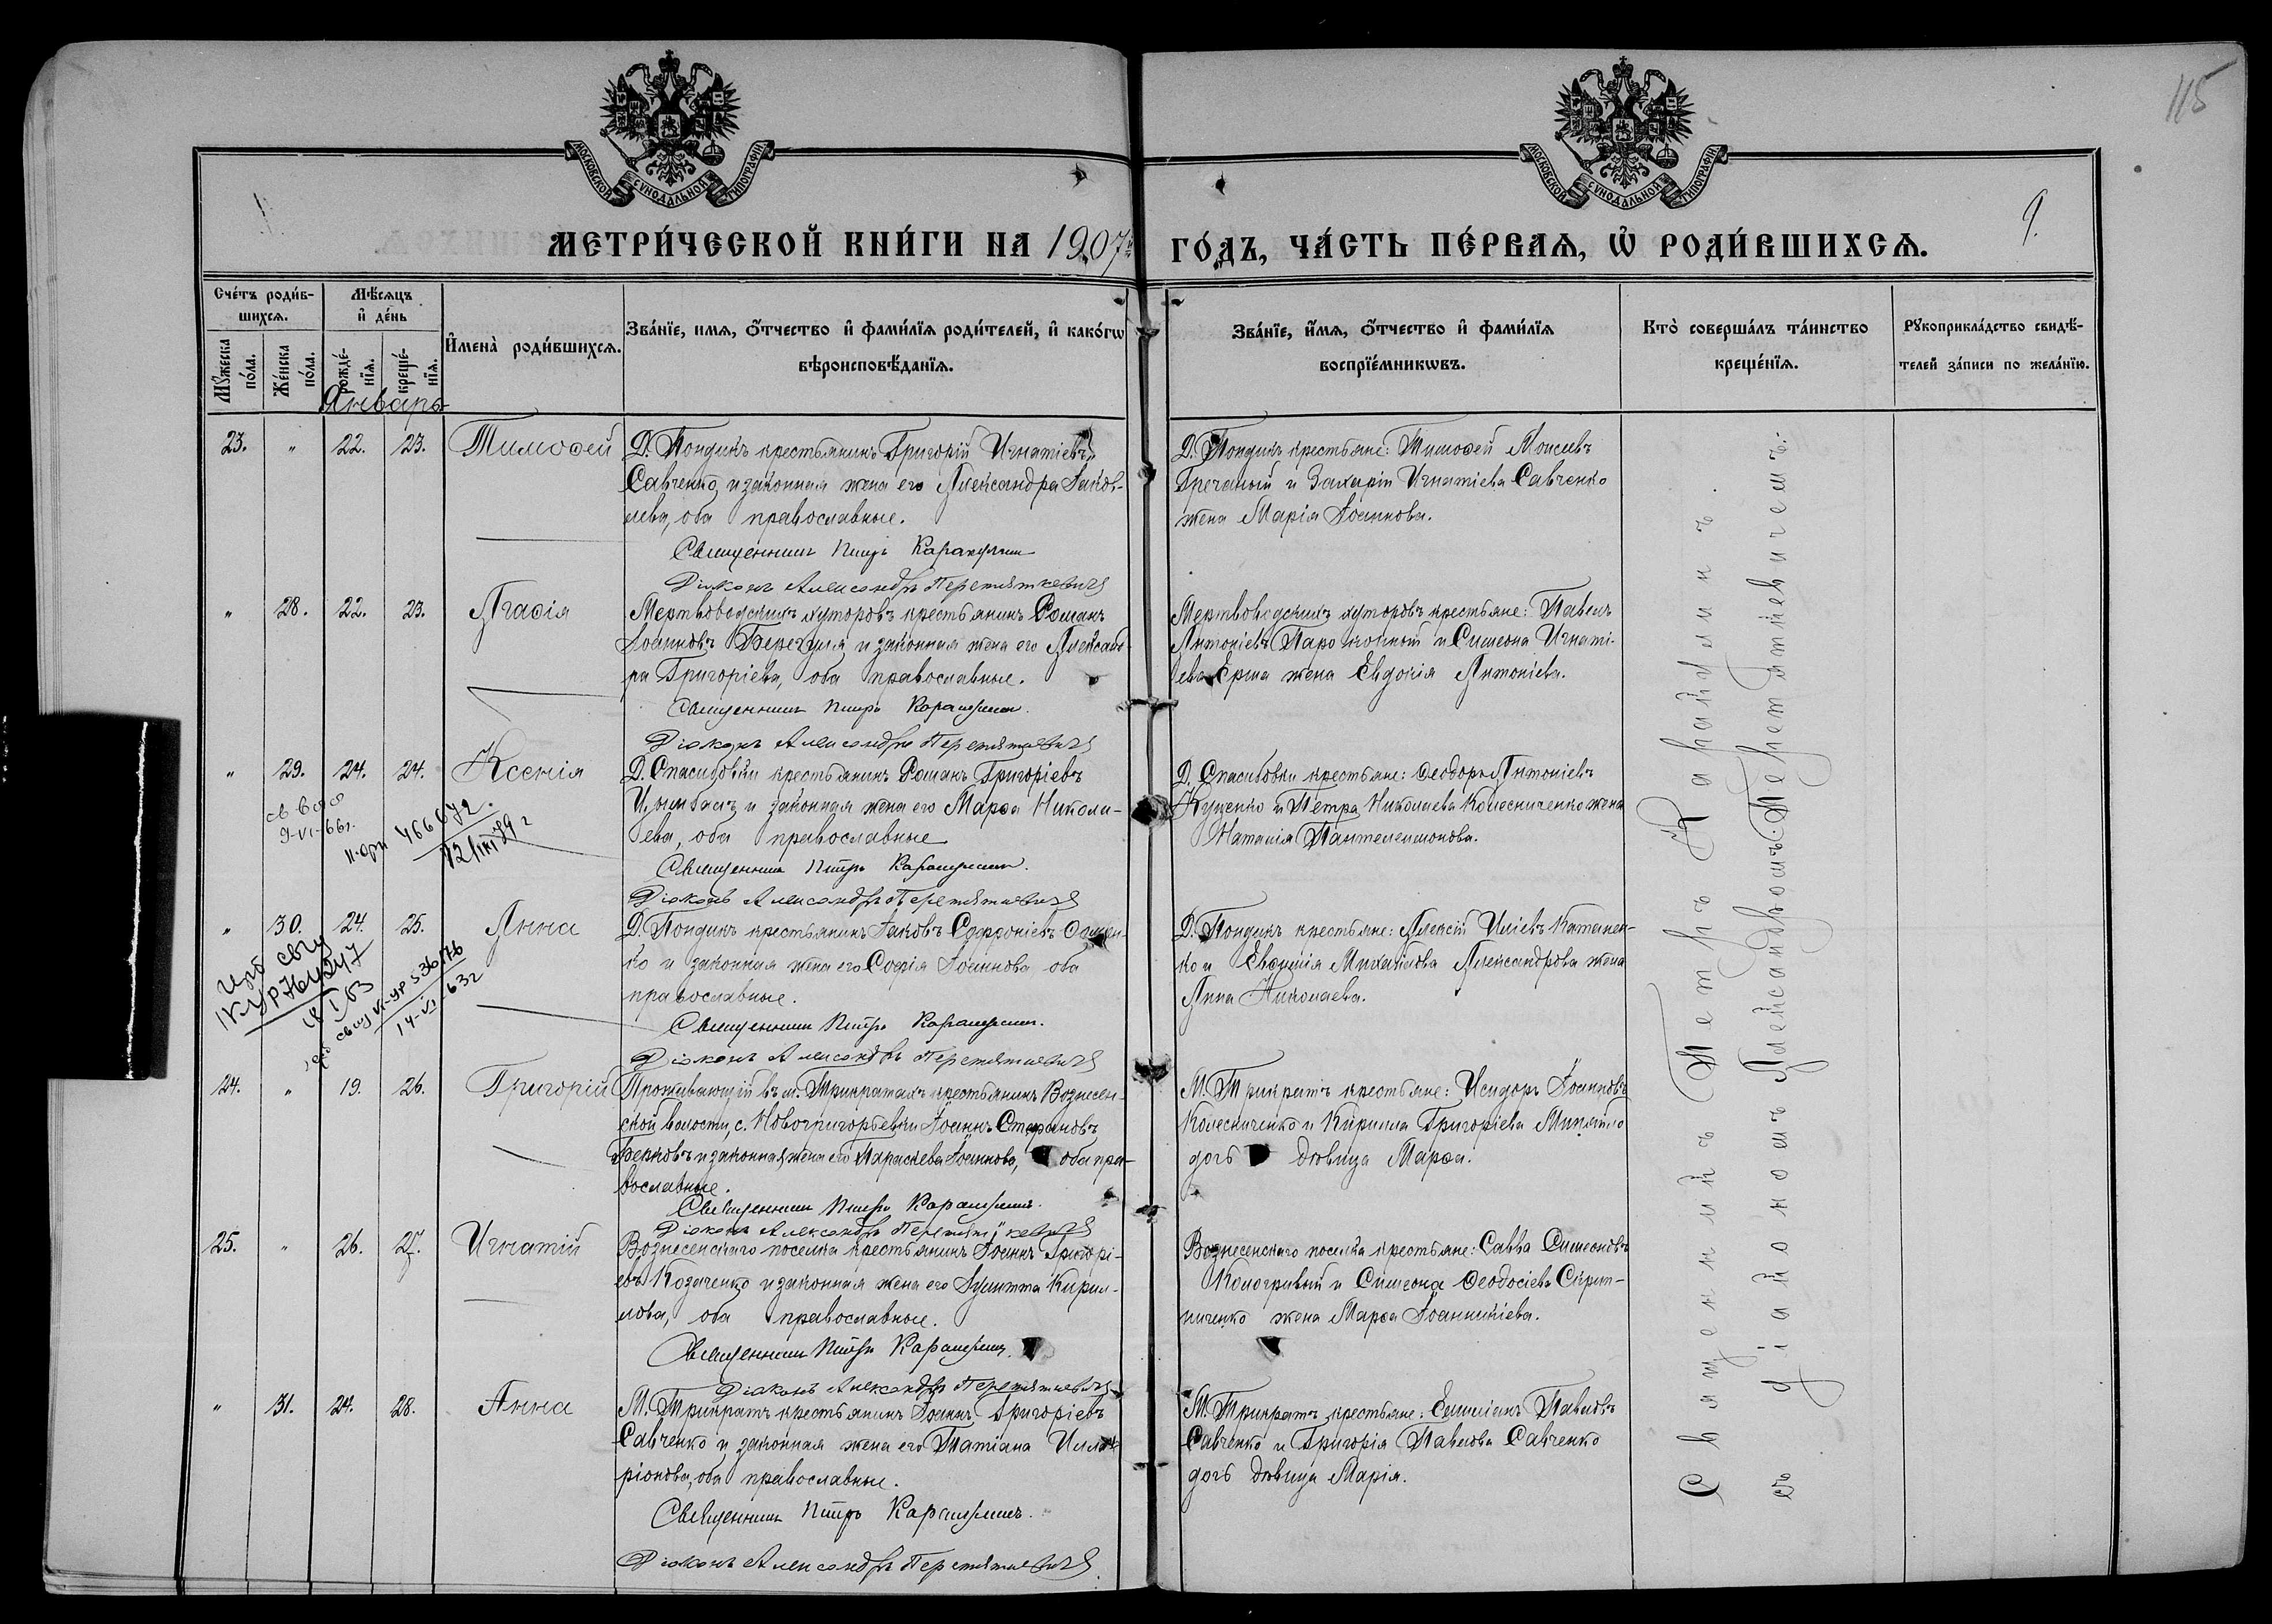 115
МОСКОВСКОЙ СѴНОДАЛЬНОЙ ТИПОГРАФІИ
МОСКОВСКОЙ СѴНОДАЛЬНОЙ ТИПОГРАФІИ
9.
МЕТРИ́ЧЕСКОЙ КНИ́ГИ НА 1907й ГО́ДЪ, ЧА́СТЬ ПЕ́РВАѦ, Ѡ҆ РОДИ́ВШИХСѦ.
Сче́тъ роди́в-
шихсѧ.
Мꙋжеска по́ла.
Же́нска по́ла.
Мѣ́сѧцъ
и҆ де́нь
рожде́-
нїѧ.
креще́-
нїѧ.
И҆мена̀ роди́вшихсѧ.
Зва́нїе, имѧ, ѻ҆́тчество и҆ фами́лїѧ роди́телей, и҆ како́гѡ
вѣроисповѣ́данїѧ.
Зва́нїе, и҆́мѧ, ѻ҆́тчество и҆ фами́лїѧ
воспрїе́мникѡвъ.
Кто̀ соверша́лъ та́инство
креще́нїѧ.
Рꙋкоприкла́дство свидѣ́-
телей за́писи по жела́нїю.
Январь
23. " 22. 23. Тимоѳей
Д. Пондикъ крестьянинъ Григорій Игнатіевъ
Савченко и законная жена его Александра Іаков-
лева, оба православные.
Священникъ Петръ
Діаконъ Александръ Перетяткевичъ
Д. Пондикъ крестьяне: Тимоѳей Моисеевъ
Гречаный и Захарія Игнатіева Савченко
жена Марія Іоаннова.
" 28. 22. 23. Агаѳія
Мертвоводскихъ хуторовъ крестьянинъ Романъ
Іоанновъ Берегуля и законная жена его Александ-
ра Григоріева, оба православные.
Священникъ Петръ
Діаконъ Александръ Перетяткевичъ
Мертвоводскихъ хуторовъ крестьяне: Павелъ
Антоніевъ и Симеона Игнаті-
ева Ерма жена Евдокія Антоніева.
" 29. 24. 24. Ксенія
Д. Спасибовки крестьянинъ Романъ Григоріевъ
Цымбалъ и законная жена его Марѳа Никола-
ева, оба православные
Священникъ Петръ
Діаконъ Александръ Перетяткевичъ
Д. Спасибовки крестьяне: Ѳеодоръ Антоніевъ
Куценко и Петра Николаева Колесниченко жена
Наталія Пантелеимонова.
9-VI-66г.
466672
" 30. 24. 25. Анна
Д. Пондикъ крестьянинъ Іаковъ Софроніевъ
ко и законная жена его Софія Іоаннова оба
православные.
Священникъ Петръ
Діаконъ Александръ Перетяткевичъ
Д. Пондикъ крестьяне: Алексій Иліевъ Каташен-
ко и Евѳимія Михайлова Александрова жена
Анна Николаева.
14-VI-63г
24. " 19. 26. Григорій
Проживающій въ м. Трикратахъ крестьянинъ Вознесен-
ской волости, с. Новогригорьевки Іоаннъ Стефановъ
и законная жена его Параскева Іоаннова, оба пра-
вославные.
Священникъ Петръ
Діаконъ Александръ Перетяткевичъ
М. Трикратъ крестьяне: Исидоръ Іоанновъ
Колесниченко и Кирилла Григоріева
дочь дѣвица Марѳа.
25. " 26. 27. Игнатій
Вознесенскаго поселка крестьянинъ Іоаннъ Григорі-
евъ Козаченко и законная жена его Іулитта Кирил-
лова, оба православные.
Священникъ Петръ
Діаконъ Александръ Перетяткевичъ
Вознесенскаго поселка крестьяне: Савва Симеоновъ
Кологривый и Симеона Ѳеодосіева Скрип-
ниченко жена Марѳа Іоанникіева.
" 31. 24. 28. Анна
М. Трикратъ крестьянинъ Іоаннъ Григоріевъ
Савченко и законная жена его Татіана Илла-
ріонова, оба православные.
Священникъ Петръ
Діаконъ Александръ Перетяткевичъ
М. Трикратъ крестьяне: Емиліанъ Павловъ
Савченко и Григорія Павлова Савченко
дочь дѣвица Марія.
Священникъ Петръ
съ діакономъ Александромъ Перетяткевичемъ.